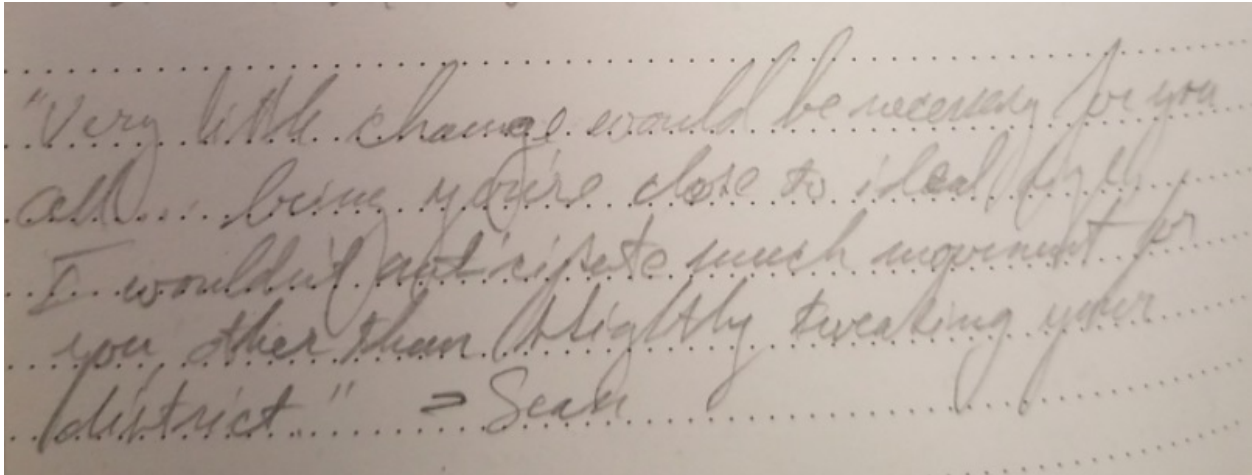 "Very little change would be necessary for you
all... being you're close to ideal
I wouldn't anticipate much movement for
you other than slightly tweaking your
district." - Sean